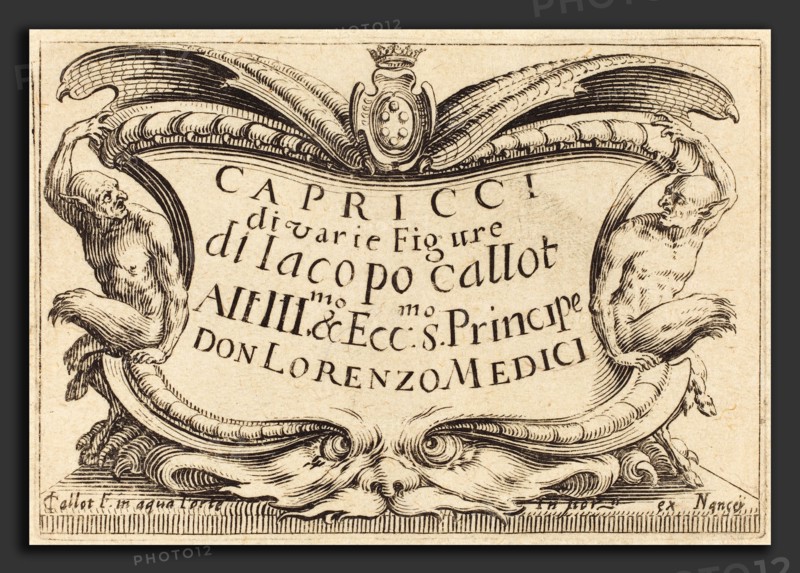 CAPRICCI
di varie Figure
di Iacopo Callot
All Ill.mo & Ecc.mo s. Principe
DON LORENZO MEDICI
Callot F. in aqua forte ex Nancey
PHOTO12